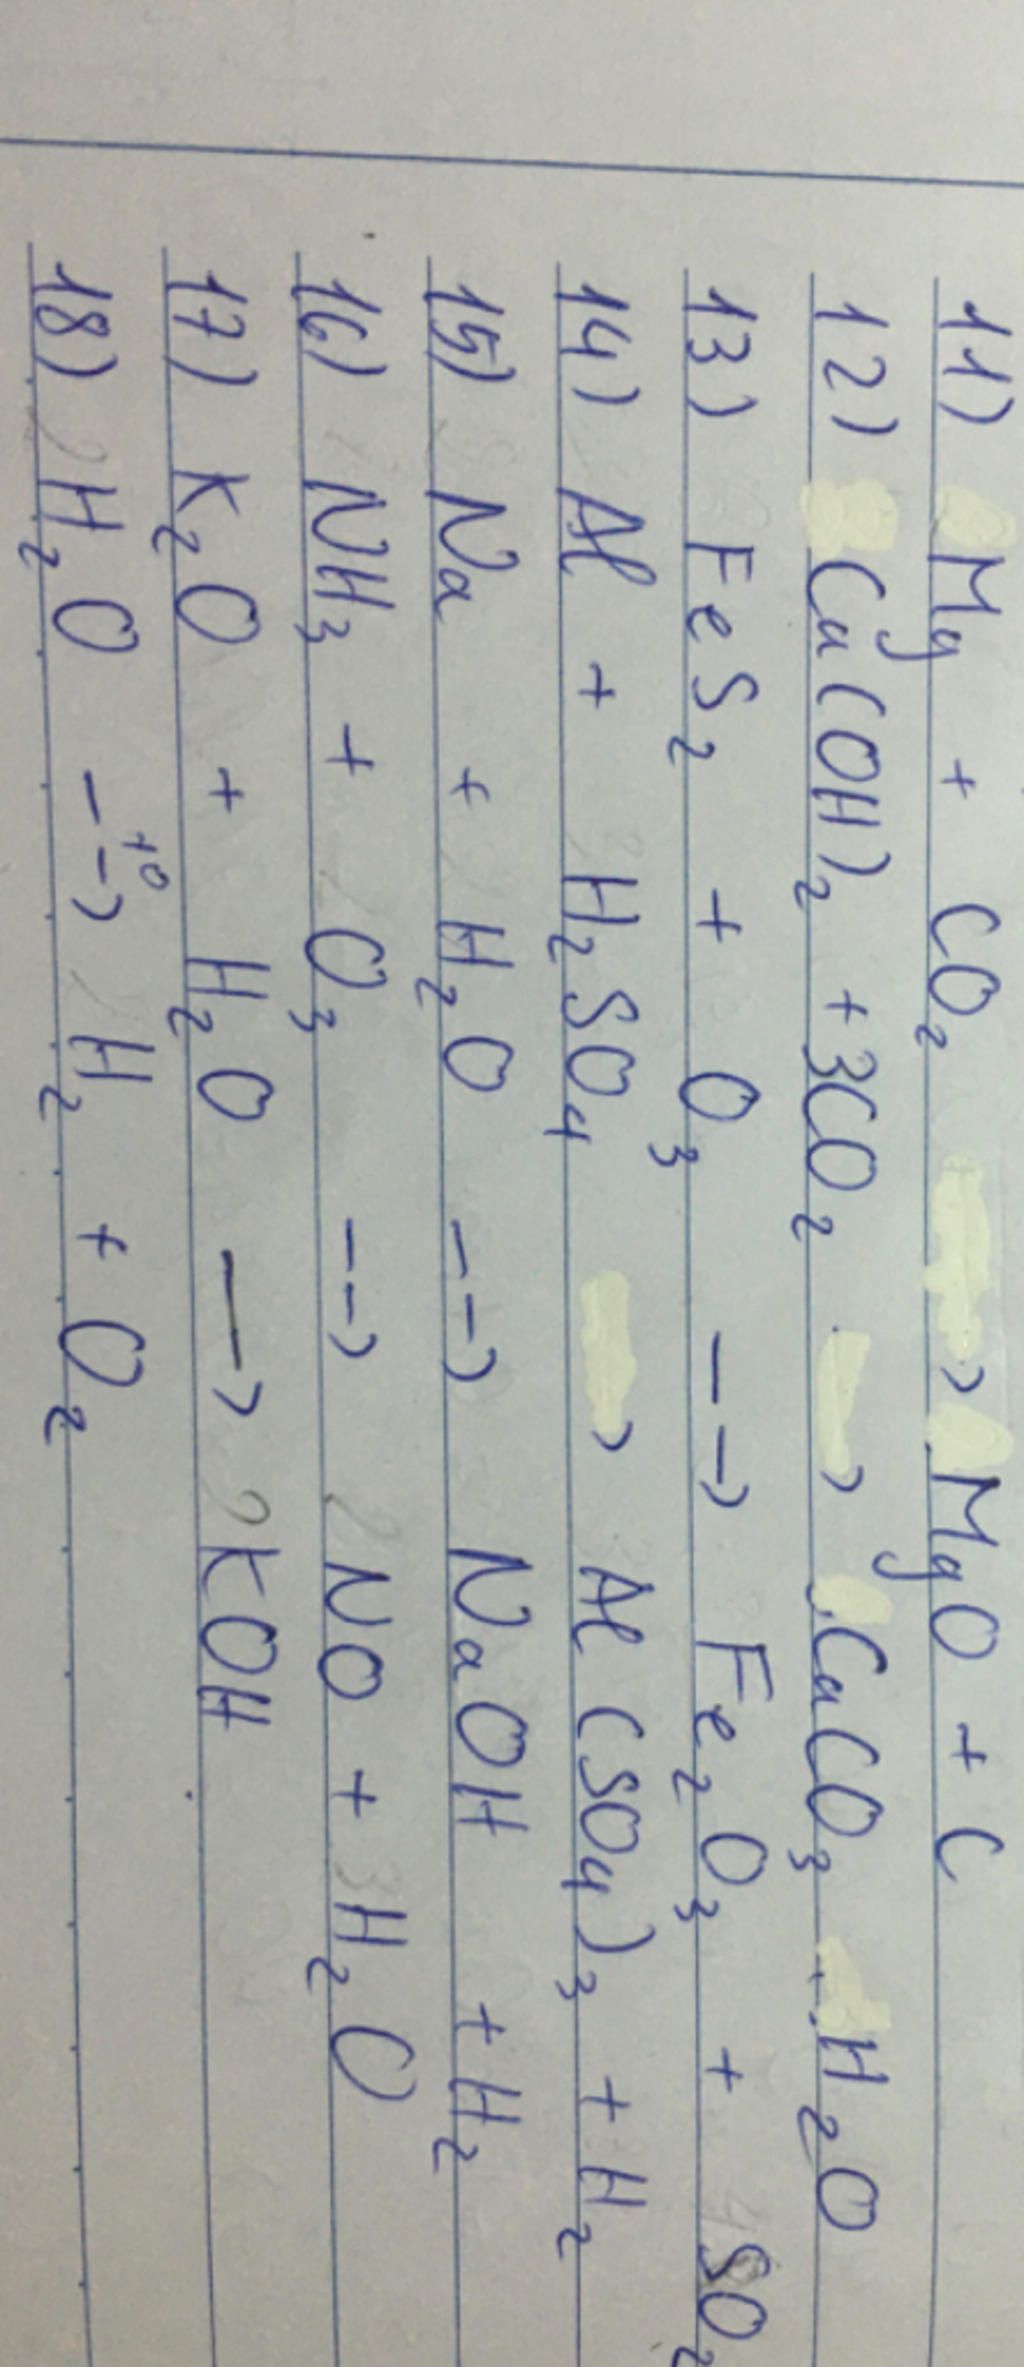 11) Mg + CO₂ → MgO + C
12) Ca(OH)₂ + 3CO₂ → CaCO₃ + H₂O
13) FeS₂ + O₃ --> Fe₂O₃ + 4SO₂
14) Al + H₂SO₄ → Al(SO₄)₃ + H₂
15) Na + H₂O --> NaOH + H₂
16) NH₃ + O₃ --> NO + 3H₂O
17) K₂O + H₂O → 2KOH
18) 2H₂O -t°-> 2H₂ + O₂